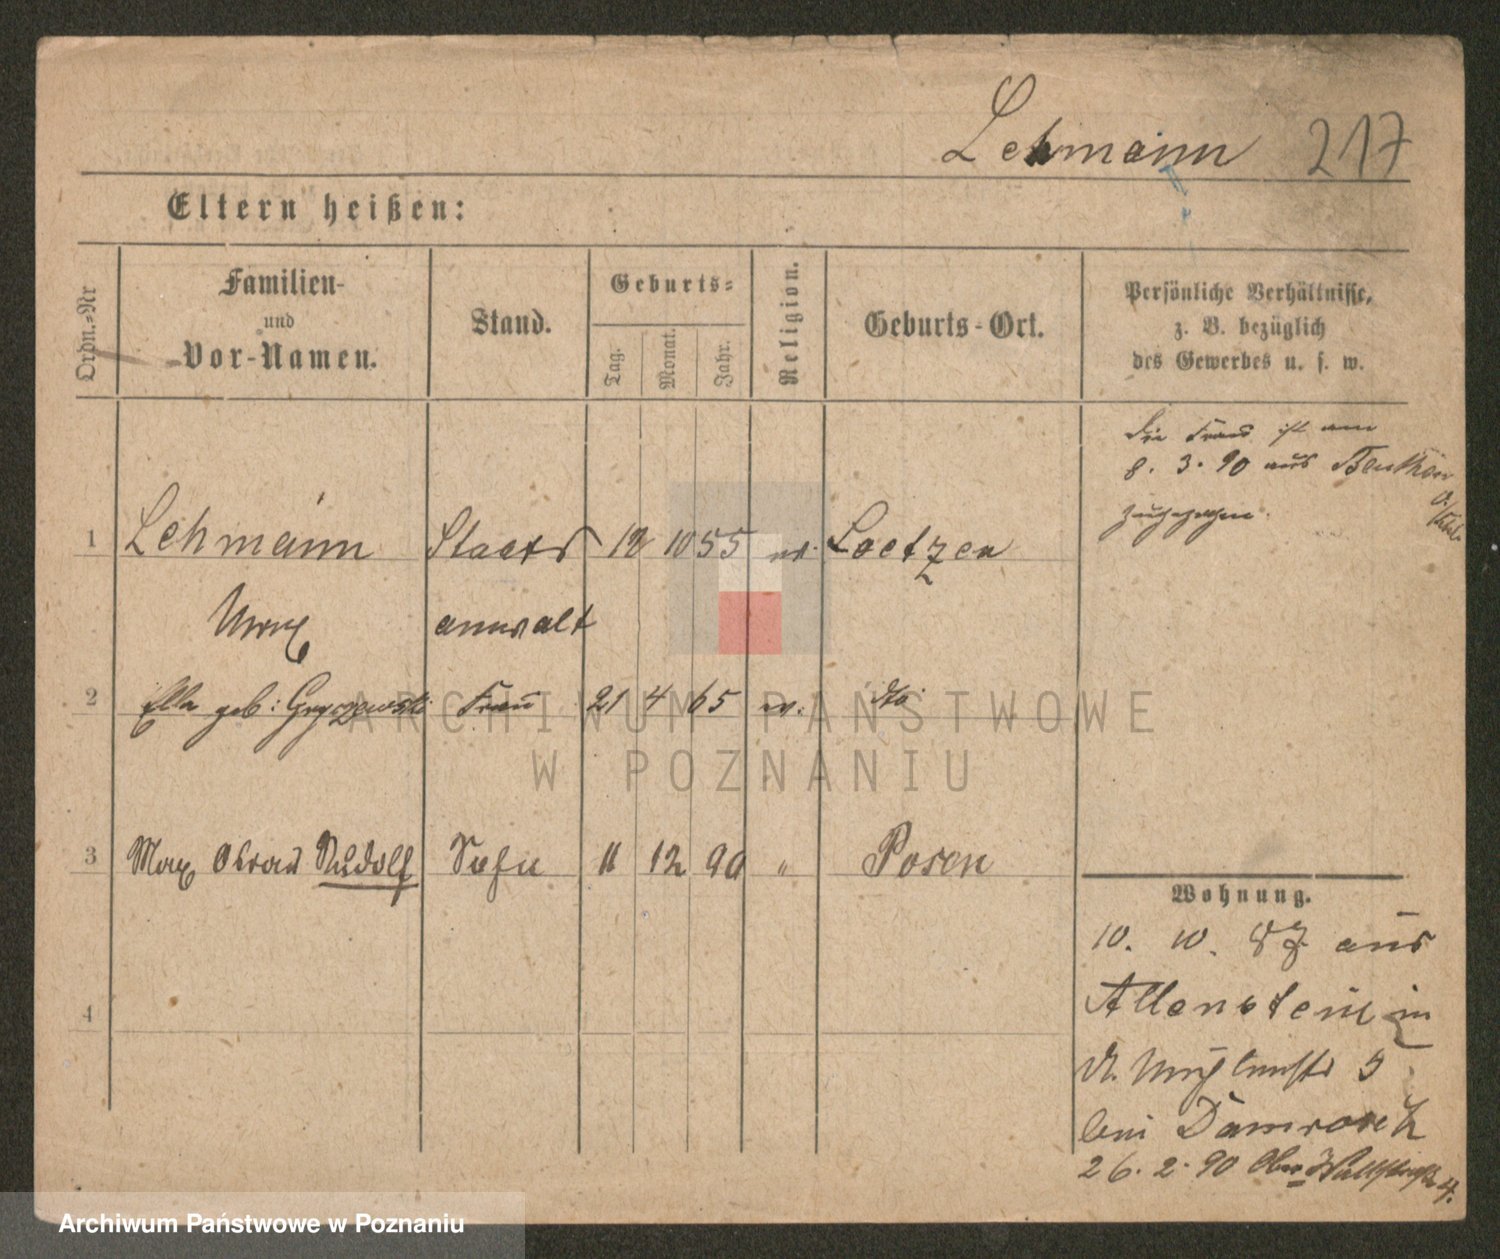 Lehmann 217
Eltern heißen:
Ordn.=Nr
Familien-
und
Vor-Namen.
Stand.
Geburts=
Tag.
Monat.
Jahr.
Religion.
Geburts-Ort.
Persönliche Verhältnisse,
z. B. bezüglich
des Gewerbes u. s. w.
Die Frau ist am
8. 3. 90 aus Beuthen
O./Schl.
zugezogen.
1 Lehmann Staats 12 10 55 ev. Loetzen
Max anwalt
2 Ella geb: Gryczewski Frau 21 4 65 ev. dto
3 Max Oskar Rudolf Sohn 11 12 90 " Posen
4
Wohnung.
10. 10. 87 aus
Allenstein in
5
bei Damrosch
26. 2. 90 Ober Wallstraße 4.
ARCHIWUM PAŃSTWOWE
W POZNANIU
Archiwum Państwowe w Poznaniu